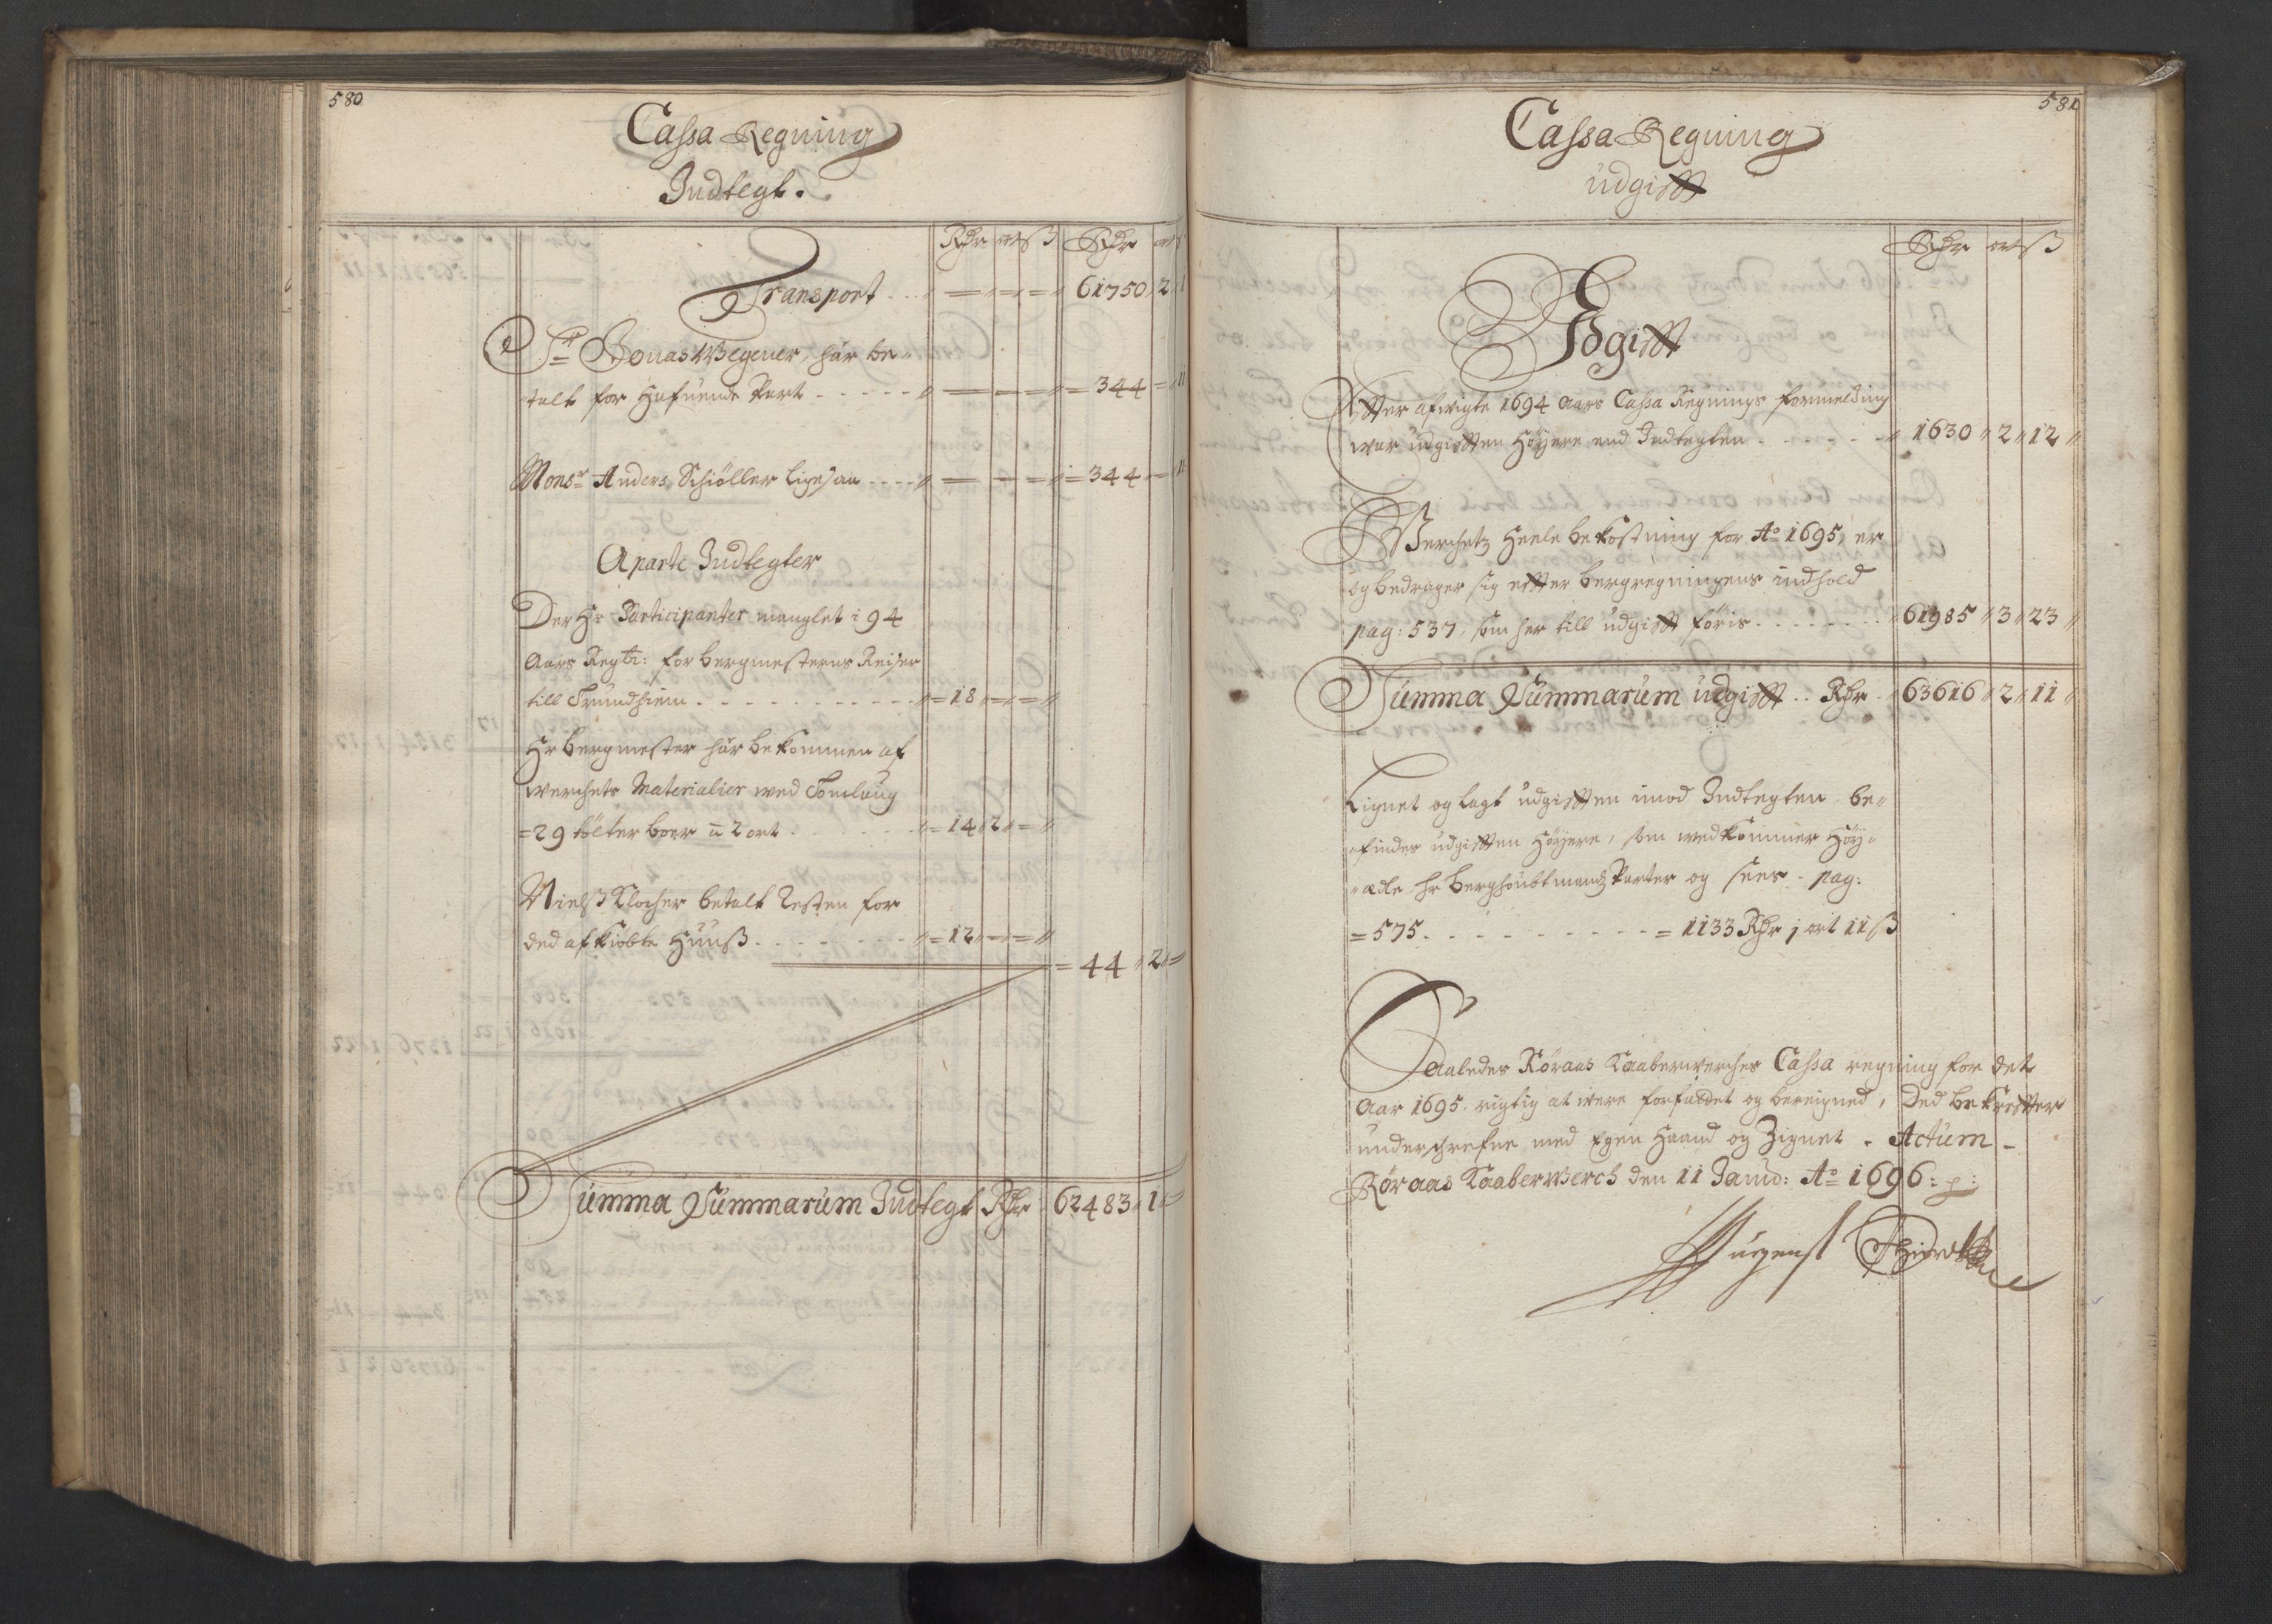 580
Cassa Regning
Indtegt.
Rdr ort ß Rdr ort
Transport . . . 61750 2 1
Sr Jonas Wegener har be-
talt for hafuende Part . . . . . 344
Monsr Anders Schiøller ligesaa . . . . 344
Aparte Indtegter
Der Hr Participanter manglet i 94
Aars Regn: for bergmesterens Reiser
till Trundhiem . . . . . . . . . 18
Hr bergmester har bekommen af
werchets Materialier wed
29 tölter boer a 2 ort . . . . . . 14 2
Nielß Klocher betalt Resten for
ded afkiøbte Huuß . . . . . . . 12
44 2
Summa Summarum Indtegt Rdr 62483 1
581
Cassa Regning
udgifft
Rdr ort ß
Udgifft
Effter afwigte 1694 Aars Cassa Regnings formelding
war udgifften Höyere end Indtegten . . . . . . 1630 2 12
Werchetz Heele bekostning for Ao 1695, er
og bedrager sig effter bergregningens indhold
pag: 537, som her till udgifft föris . . . . . . . 61985 3 23
Summa Summarum udgifft . . Rdr . 63616 2 11
Lignet og lagt udgifften imod Indtegten, be-
findes udgifften Höyere, som wedkommer Höy-
ædle Hr Berghoubtmandz Parter og sees - pag:
575 . . . . . . . . . 1133 Rdr j ort 11 ß
Saaledes Röraas Kaaberwerches Cassa regning for det
Aar 1695. rigtig at were forfattet og bereigned, ded bekreffter
underschrefne med Egen Haand og Zignet. Actum
Röraas Kaaberwerch den 11 Janud: Ao 1696: p: